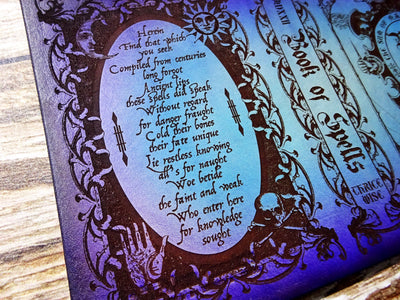 Herein
Find that which
you seek
Compiled from centuries
long forgot
Ancient lips
these spells did speak
Without regard
for danger fraught
Cold their bones
their fate unique
Lie restless knowing
all's for naught
Woe betide
the faint and weak
Who enter here
for knowledge
sought
Book of Spells
Thrice
Wise